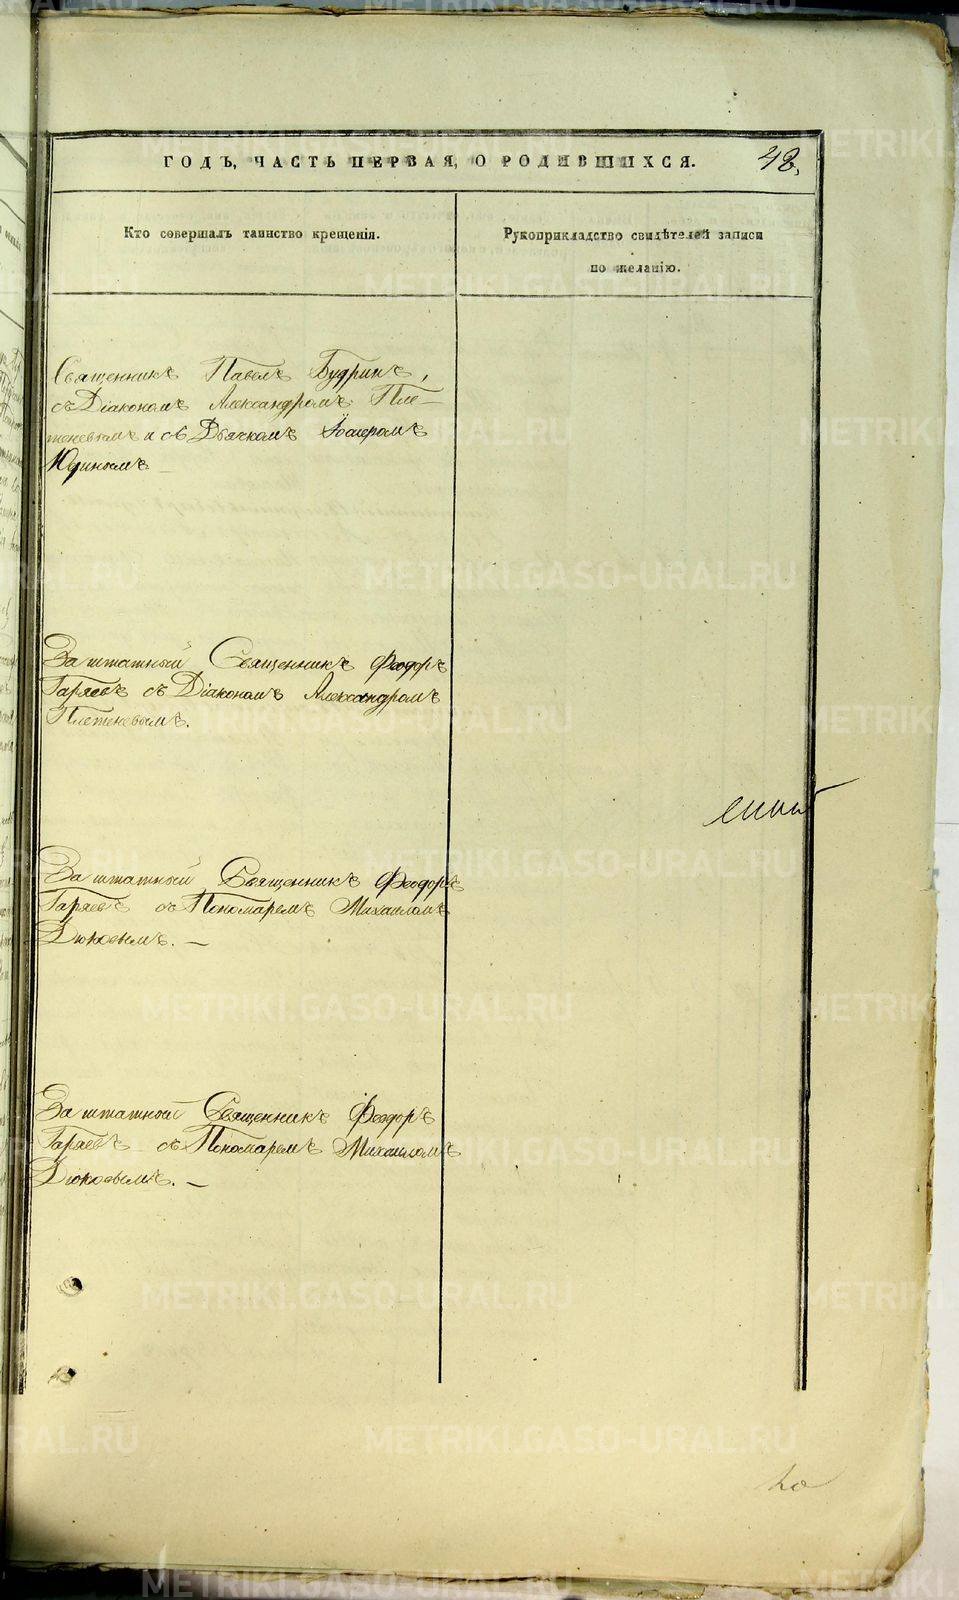 ГОДЪ, ЧАСТЬ ПЕРВАЯ, О РОДИВШИХСЯ.
48.
Кто совершалъ таинство крещенія.
Рукоприкладство свидѣтелей записи
по желанію.
Священникъ Павелъ Будринъ,
съ Діакономъ Александромъ Пле-
теневымъ и съ Дьячкомъ
Юдинымъ —
Заштатный Священникъ Феодоръ
Гаряевъ съ Діакономъ Александромъ
Плетеневымъ.
Заштатный Священникъ Феодоръ
Гаряевъ съ Пономаремъ Михаиломъ
Дюковымъ. —
Заштатной Священникъ Феодоръ
Гаряевъ съ Пономаремъ Михаиломъ
Дюковымъ. —
METRIKI.GASO-URAL.RU